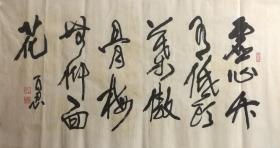 虚心竹
有低头
叶傲
骨梅
无仰面
花